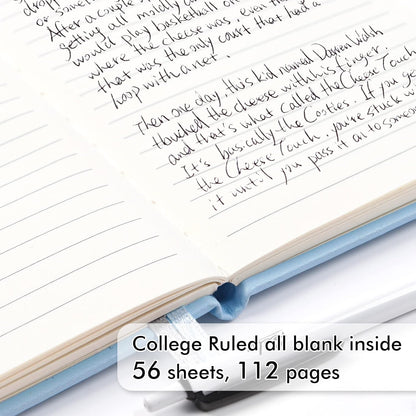 After a couple
getting all mildly
would play basketball on
where the cheese was, even th
that was the only court that had a
loop with a net.
Then one day, this kid named Darren Walsh
touched the cheese with his finger.
and that's what called the Cheese Touch
It's basically the Cooties. If you get
the Cheese Touch, you're stuck w
it until you pass it on to someon
College Ruled all blank inside
56 sheets, 112 pages